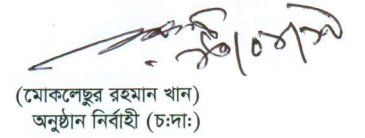 (মোকলেছুর রহমান খান)
অনুষ্ঠান নির্বাহী (চ:দা:)